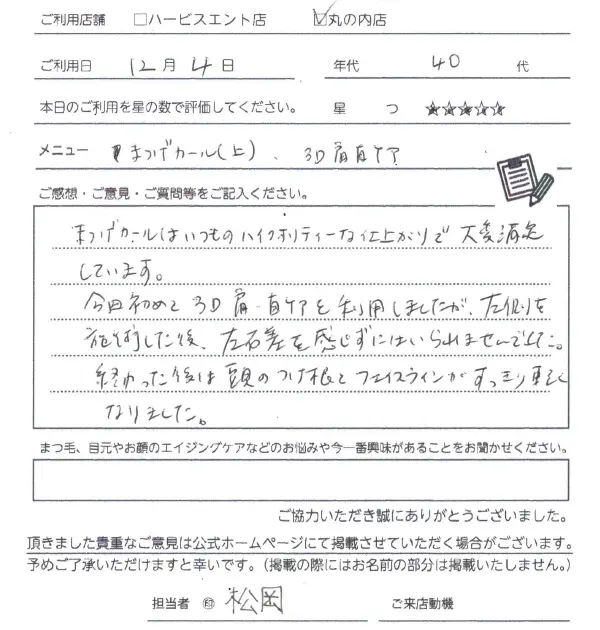 ご利用店舗 □ハービスエント店 ☑丸の内店
ご利用日 12月4日 年代 40代
本日のご利用を星の数で評価してください。 星 つ ★★★★★
メニュー まつげカール(上)、3D肩首ケア
ご感想・ご意見・ご質問等をご記入ください。
まつげカールはいつものハイクオリティーな仕上がりで大変満足
しています。
今回初めて3D肩・首ケアを利用しましたが、左側を
施術した後、左右差を感じずにはいられませんでした。
終わった後は頭のつけ根とフェイスラインがすっきり軽く
なりました。
まつ毛、目元やお顔のエイジングケアなどのお悩みや今一番興味があることをお聞かせください。
ご協力いただき誠にありがとうございました。
頂きました貴重なご意見は公式ホームページにて掲載させていただく場合がございます。
予めご了承いただけますと幸いです。(掲載の際にはお名前の部分は掲載いたしません。)
担当者 ㊞ 松岡 ご来店動機